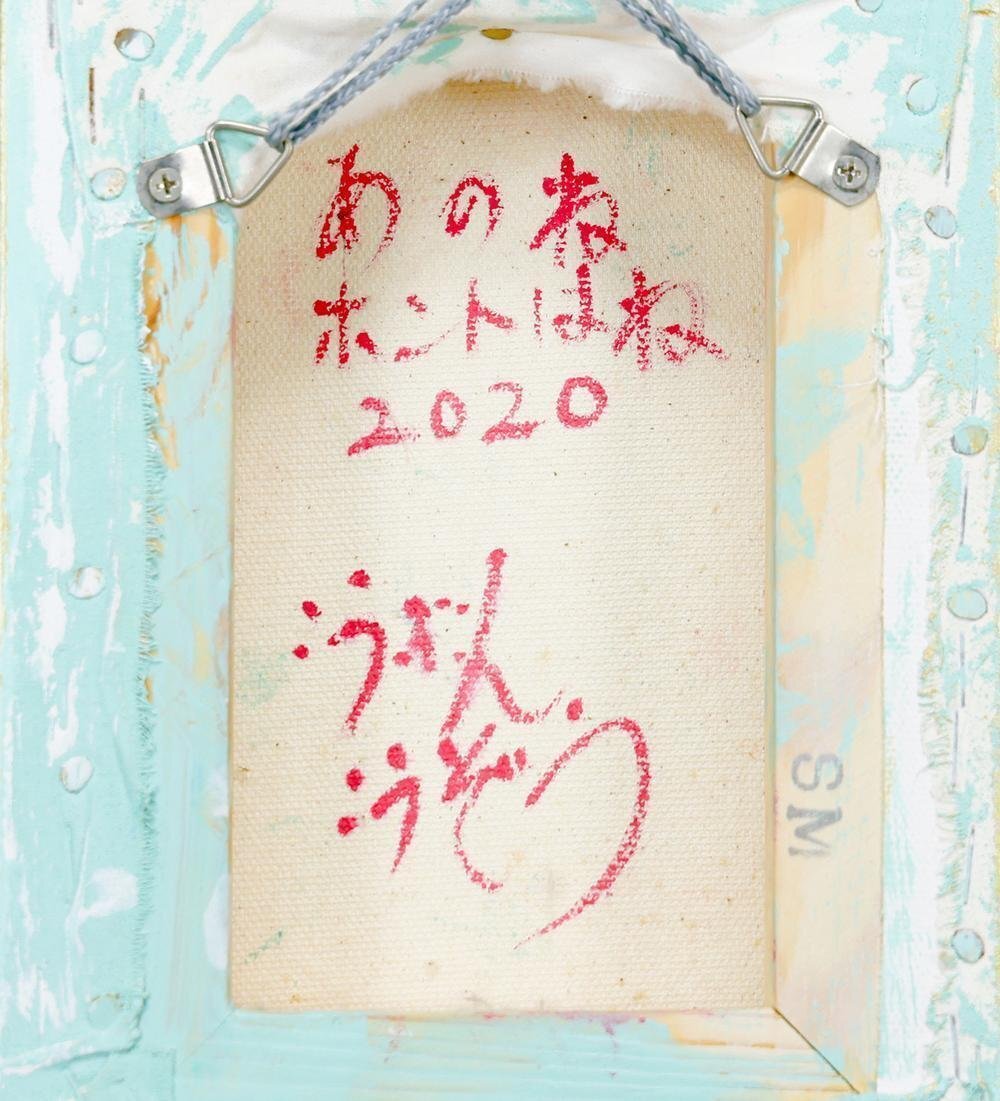 あのね
ホントはね
2020
うぞう
SM